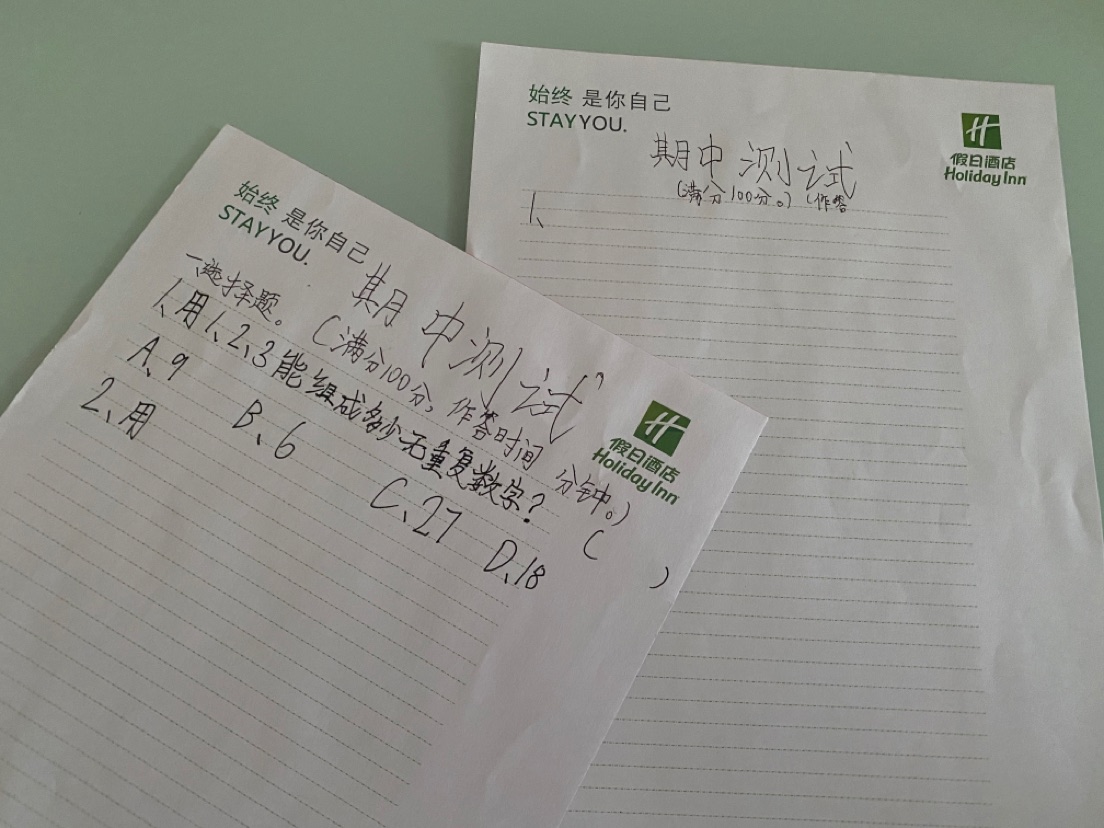 始终 是你自己
STAYYOU.
假日酒店
Holiday Inn
期中测试
(满分100分。)(作答
1、
始终 是你自己
STAYYOU.
假日酒店
Holiday Inn
期中测试
(满分100分,作答时间 分钟。)
一、选择题。
1、用1、2、3能组成多少无重复数字? ( )
A、9 B、6 C、27 D、18
2、用